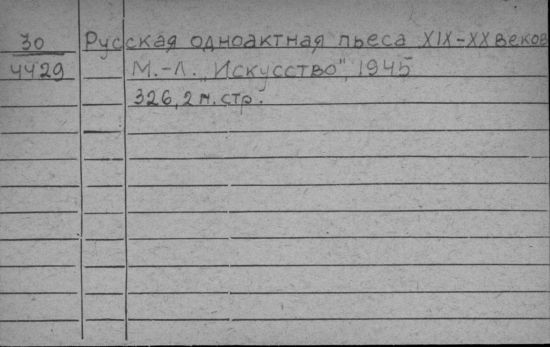 30 Русская одноактная пьеса XIX-XX веков
4429 М.-Л. „Искусство", 1945
326, 2 н. стр.